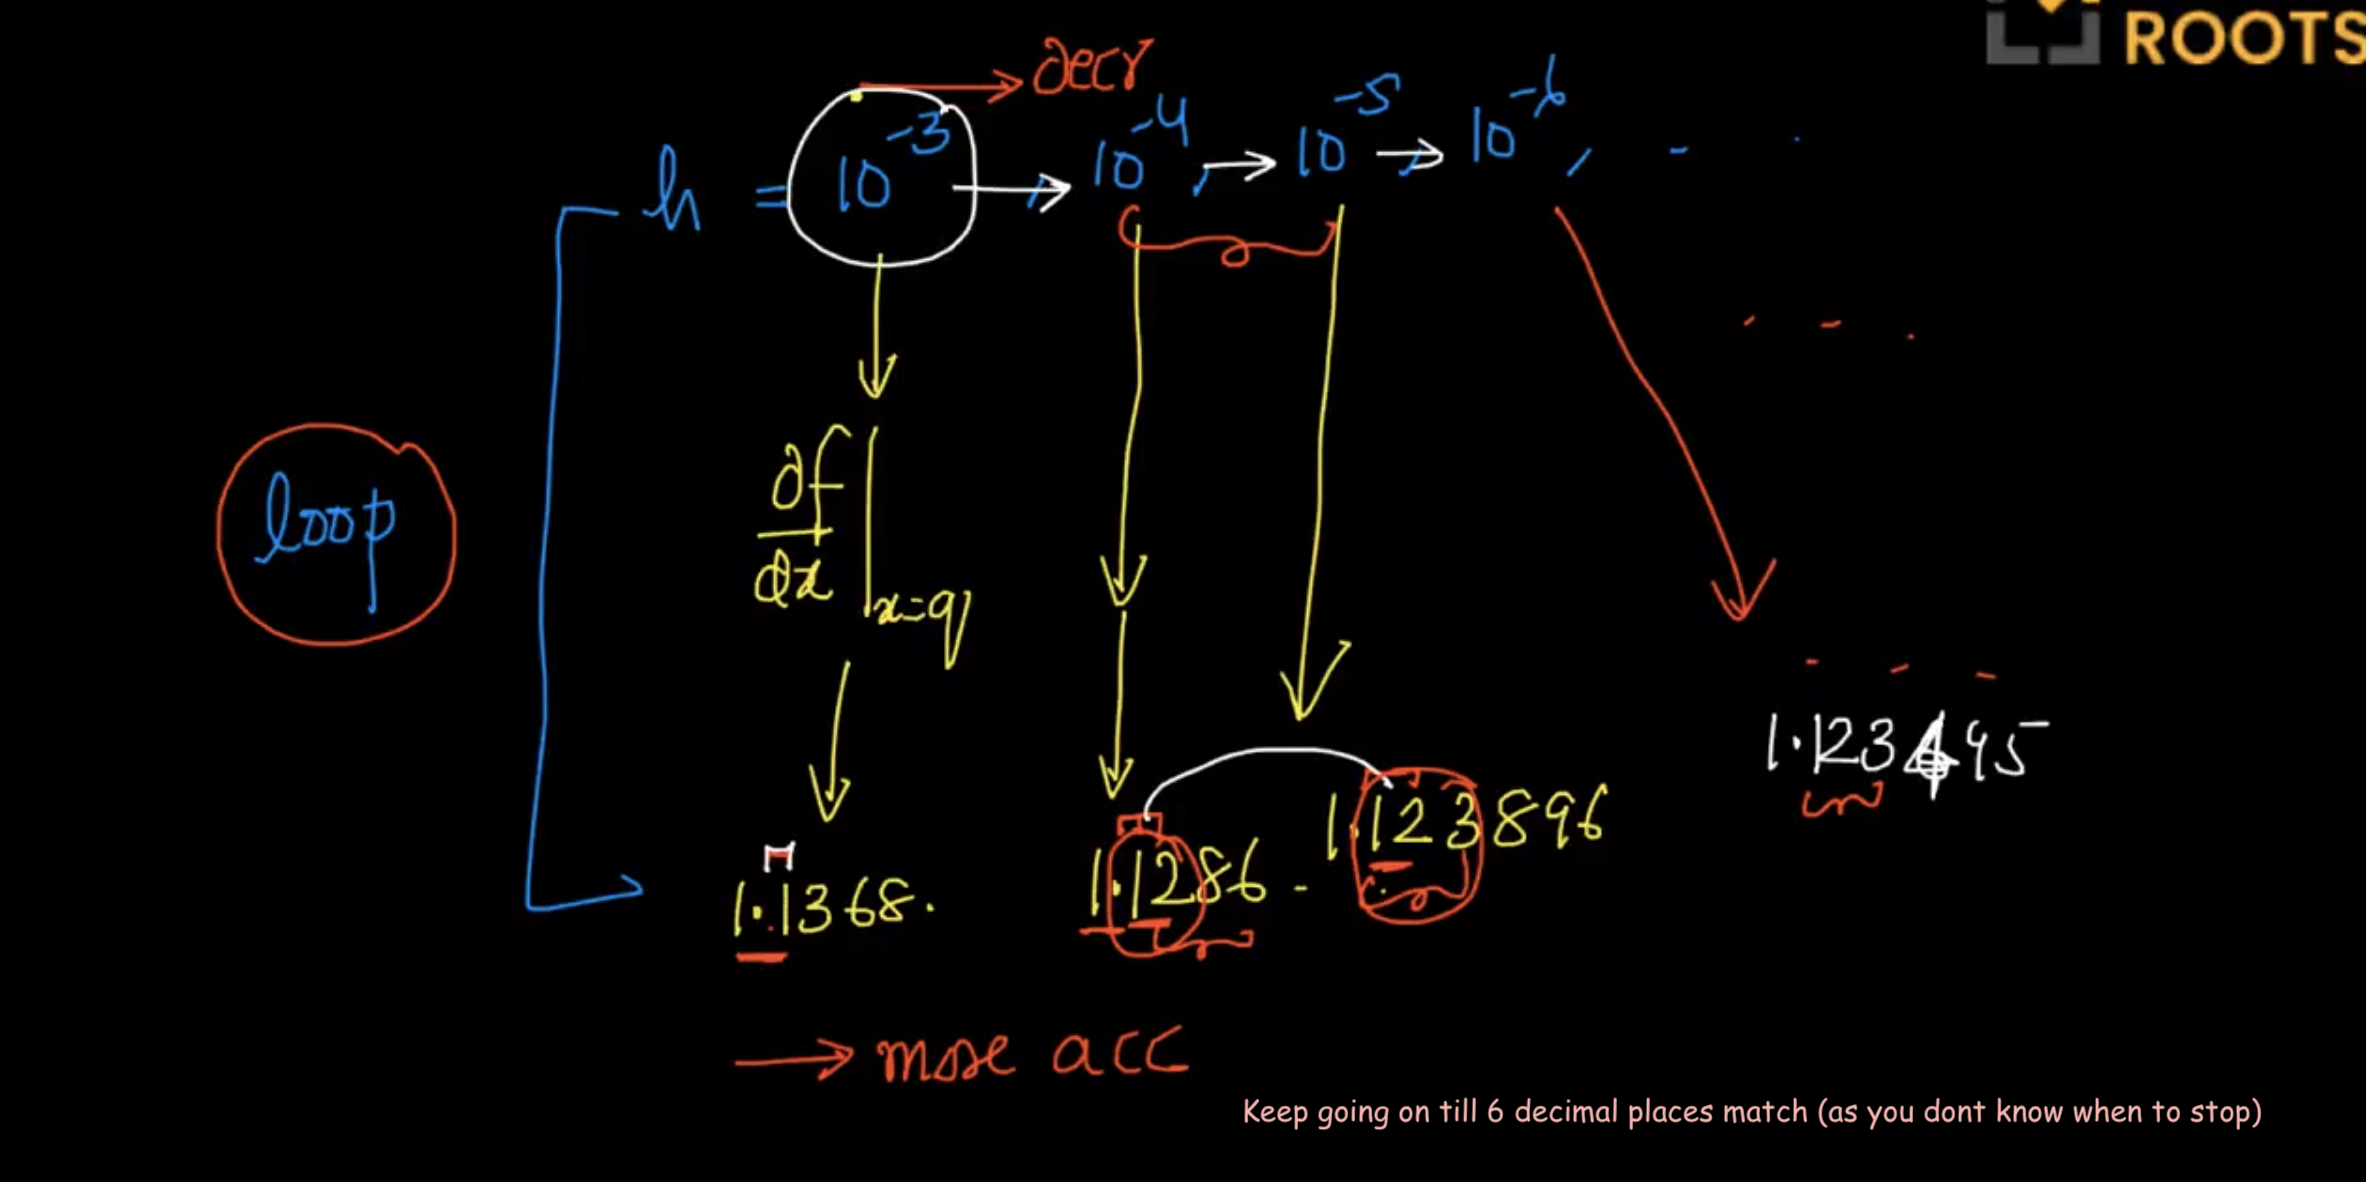 ROOTS
decr
h = 10^-3, 10^-4, 10^-5, 10^-6, - .
loop
∂f/∂x |x=q
1.123495
1.1368. 1.1286 - 1.123896
→ more acc
Keep going on till 6 decimal places match (as you dont know when to stop)